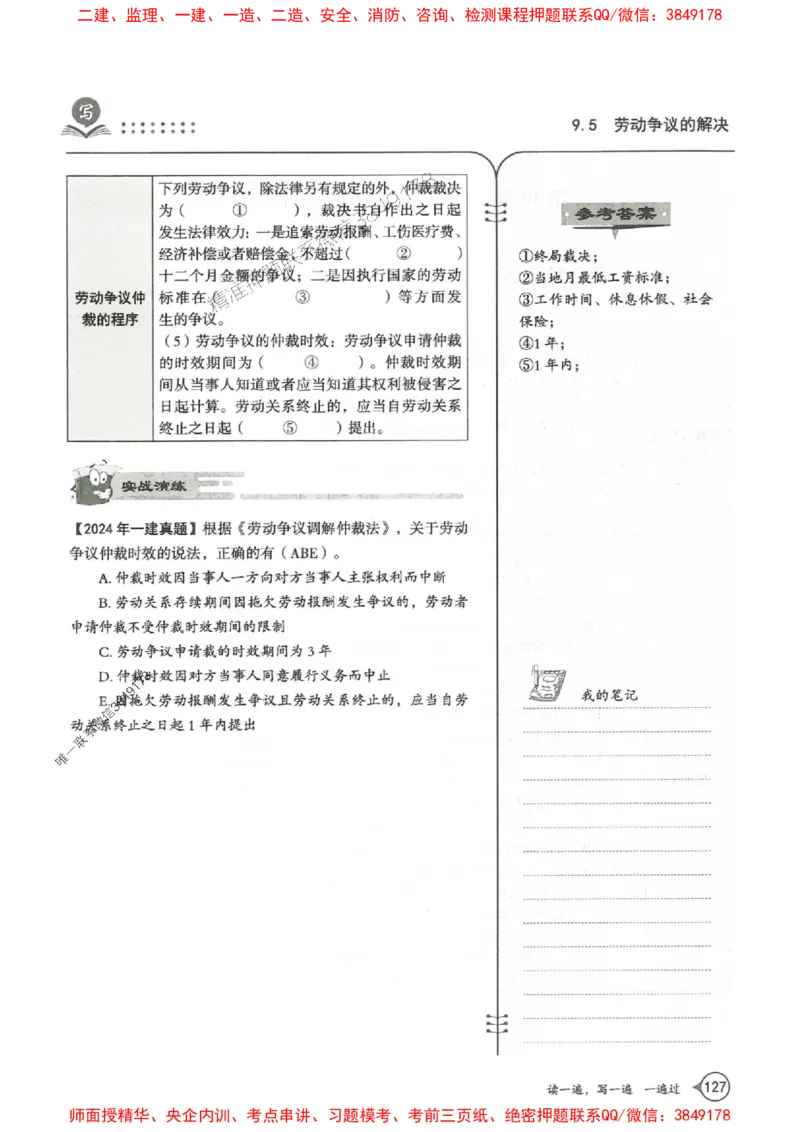 二建、监理、一建、一造、二造、安全、消防、咨询、检测课程押题联系QQ/微信：3849178
写
9.5 劳动争议的解决
劳动争议仲
裁的程序
下列劳动争议，除法律另有规定的外，仲裁裁决
为（ ① ），裁决书自作出之日起
发生法律效力：一是追索劳动报酬、工伤医疗费、
经济补偿或者赔偿金，不超过（ ② ）
十二个月金额的争议；二是因执行国家的劳动
标准在（ ③ ）等方面发
生的争议。
（5）劳动争议的仲裁时效：劳动争议申请仲裁
的时效期间为（ ④ ）。仲裁时效期
间从当事人知道或者应当知道其权利被侵害之
日起计算。劳动关系终止的，应当自劳动关系
终止之日起（ ⑤ ）提出。
参考答案
①终局裁决；
②当地月最低工资标准；
③工作时间、休息休假、社会
保险；
④1年；
⑤1年内；
实战演练
【2024年一建真题】根据《劳动争议调解仲裁法》，关于劳动
争议仲裁时效的说法，正确的有（ABE）。
A.仲裁时效因当事人一方向对方当事人主张权利而中断
B.劳动关系存续期间因拖欠劳动报酬发生争议的，劳动者
申请仲裁不受仲裁时效期间的限制
C.劳动争议申请裁的时效期间为3年
D.仲裁时效因对方当事人同意履行义务而中止
E.因拖欠劳动报酬发生争议且劳动关系终止的，应当自劳
动关系终止之日起1年内提出
我的笔记
读一遍，写一遍 一遍过
127
师面授精华、央企内训、考点串讲、习题模考、考前三页纸、绝密押题联系QQ/微信：3849178